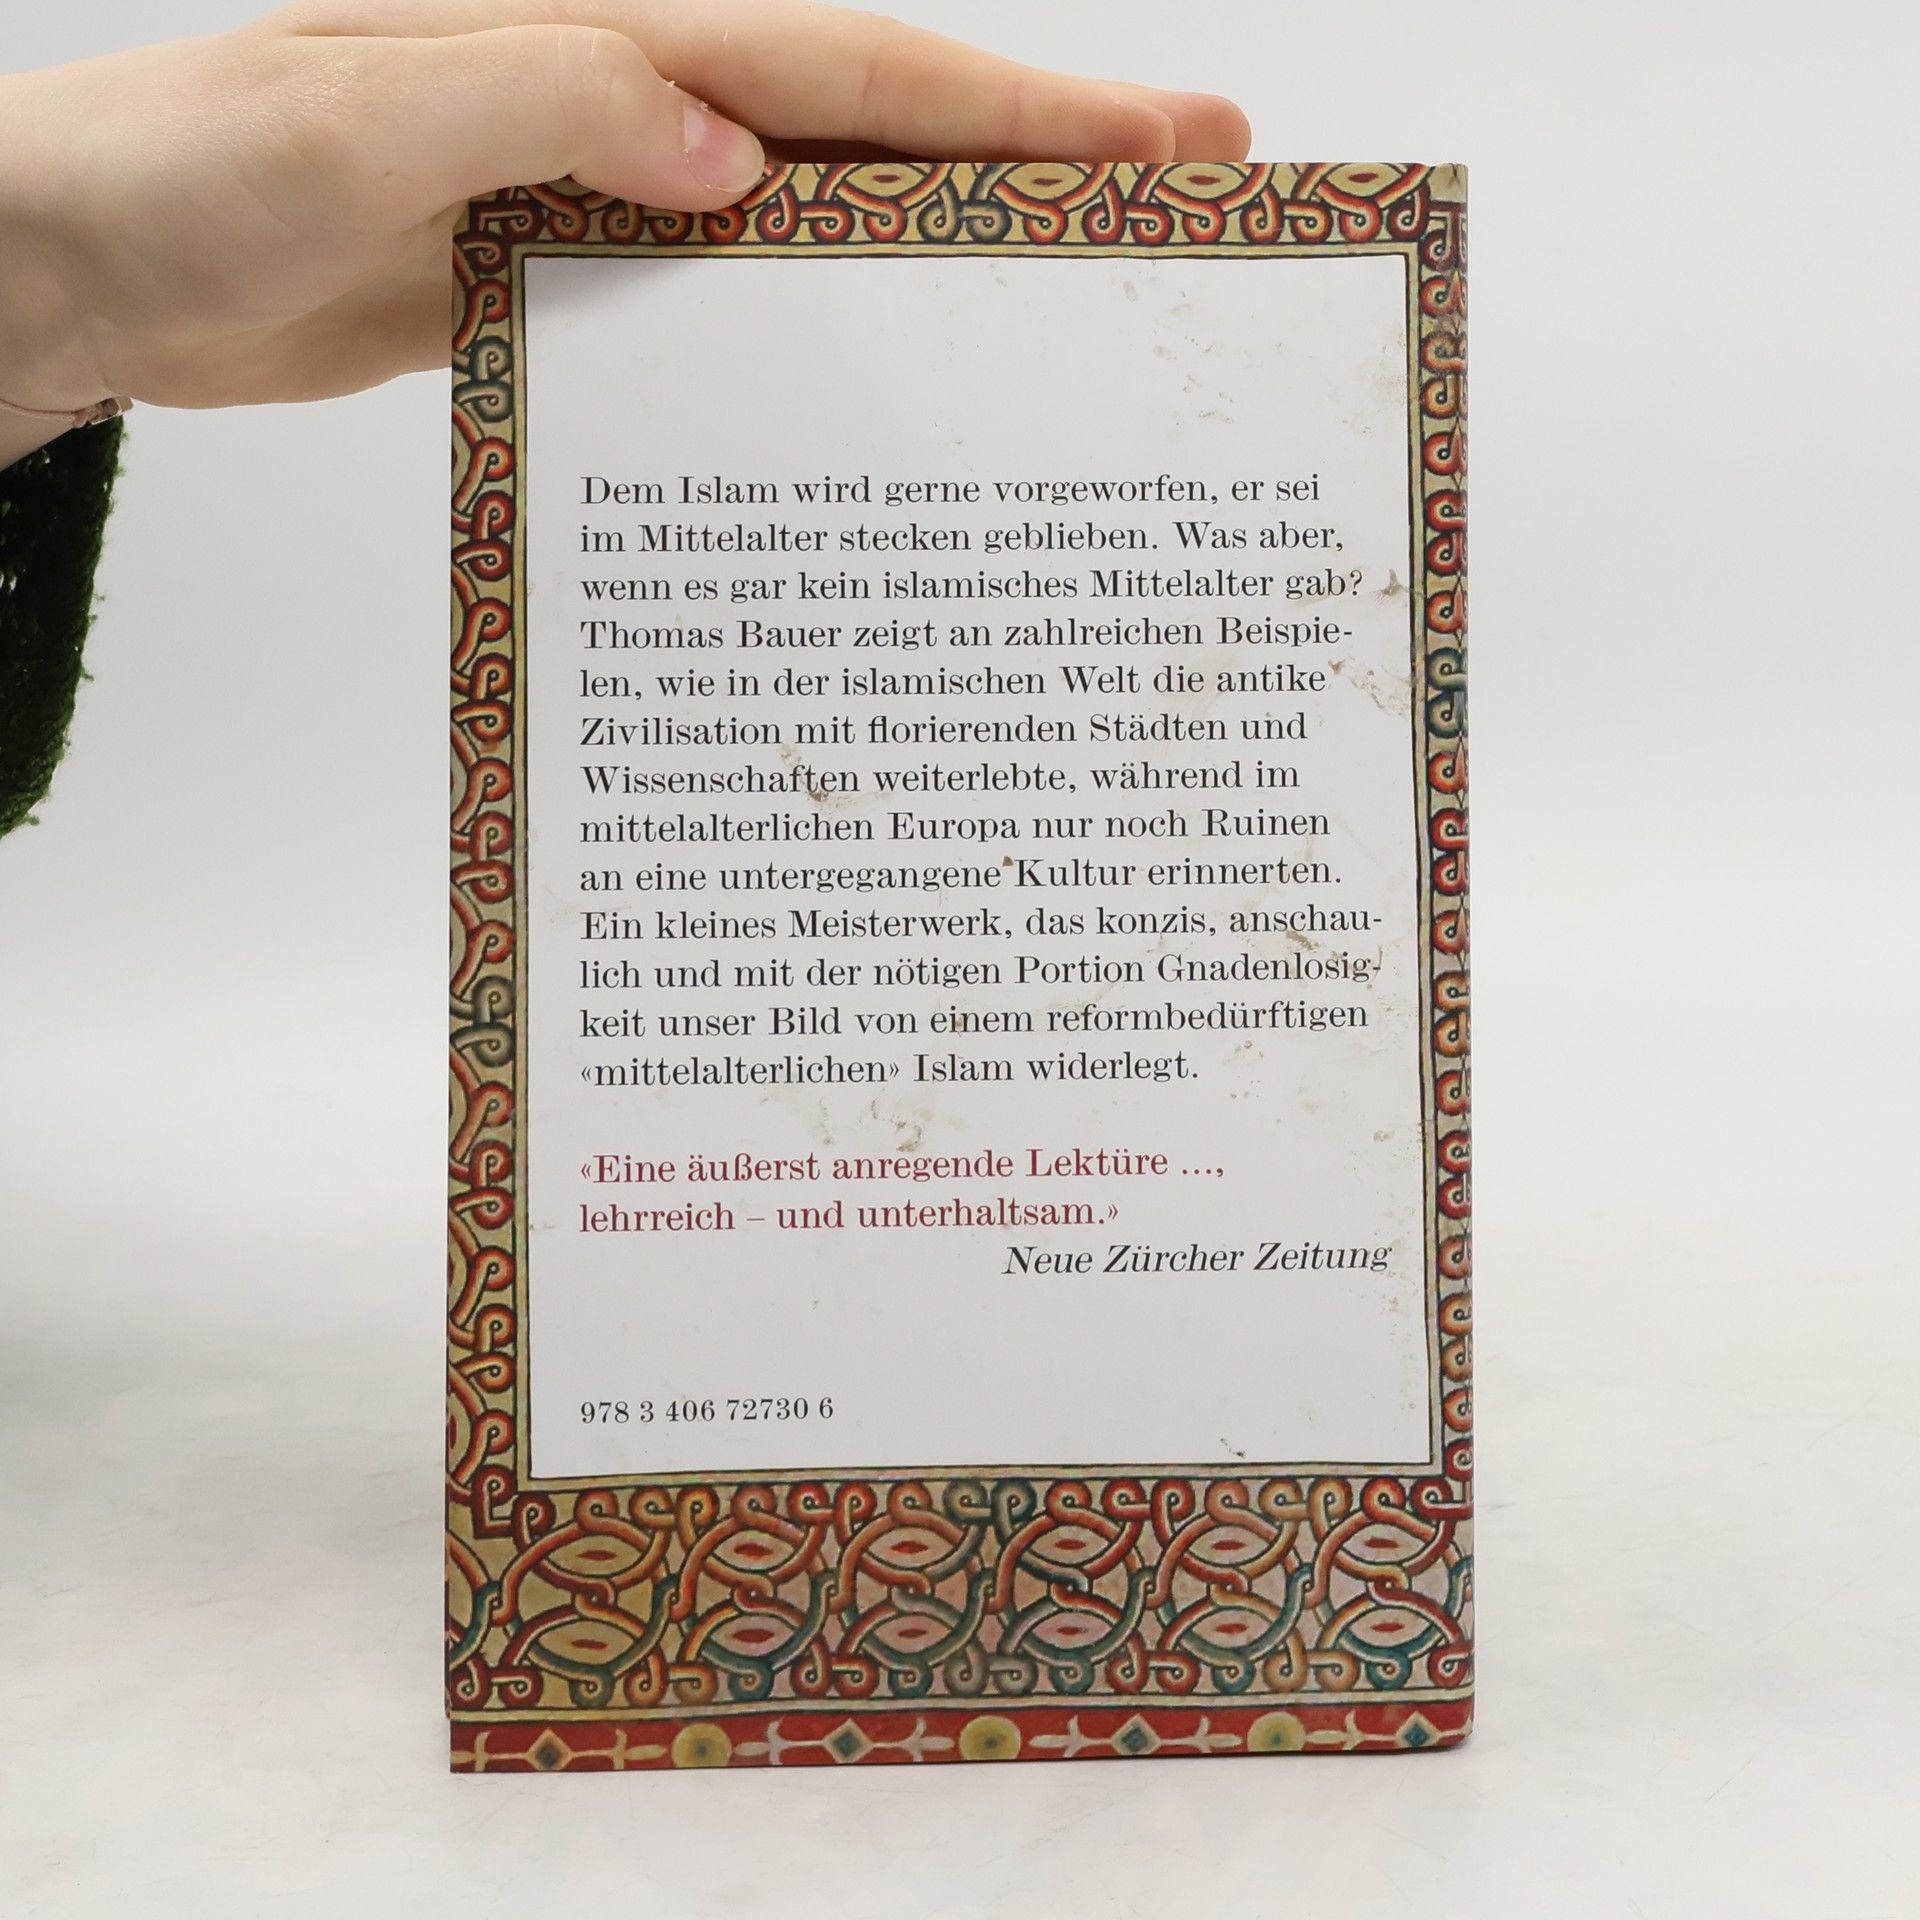 Dem Islam wird gerne vorgeworfen, er sei
im Mittelalter stecken geblieben. Was aber,
wenn es gar kein islamisches Mittelalter gab?
Thomas Bauer zeigt an zahlreichen Beispie-
len, wie in der islamischen Welt die antike
Zivilisation mit florierenden Städten und
Wissenschaften weiterlebte, während im
mittelalterlichen Europa nur noch Ruinen
an eine untergegangene Kultur erinnerten.
Ein kleines Meisterwerk, das konzis, anschau-
lich und mit der nötigen Portion Gnadenlosig-
keit unser Bild von einem reformbedürftigen
«mittelalterlichen» Islam widerlegt.
«Eine äußerst anregende Lektüre ...,
lehrreich – und unterhaltsam.»
Neue Zürcher Zeitung
978 3 406 72730 6